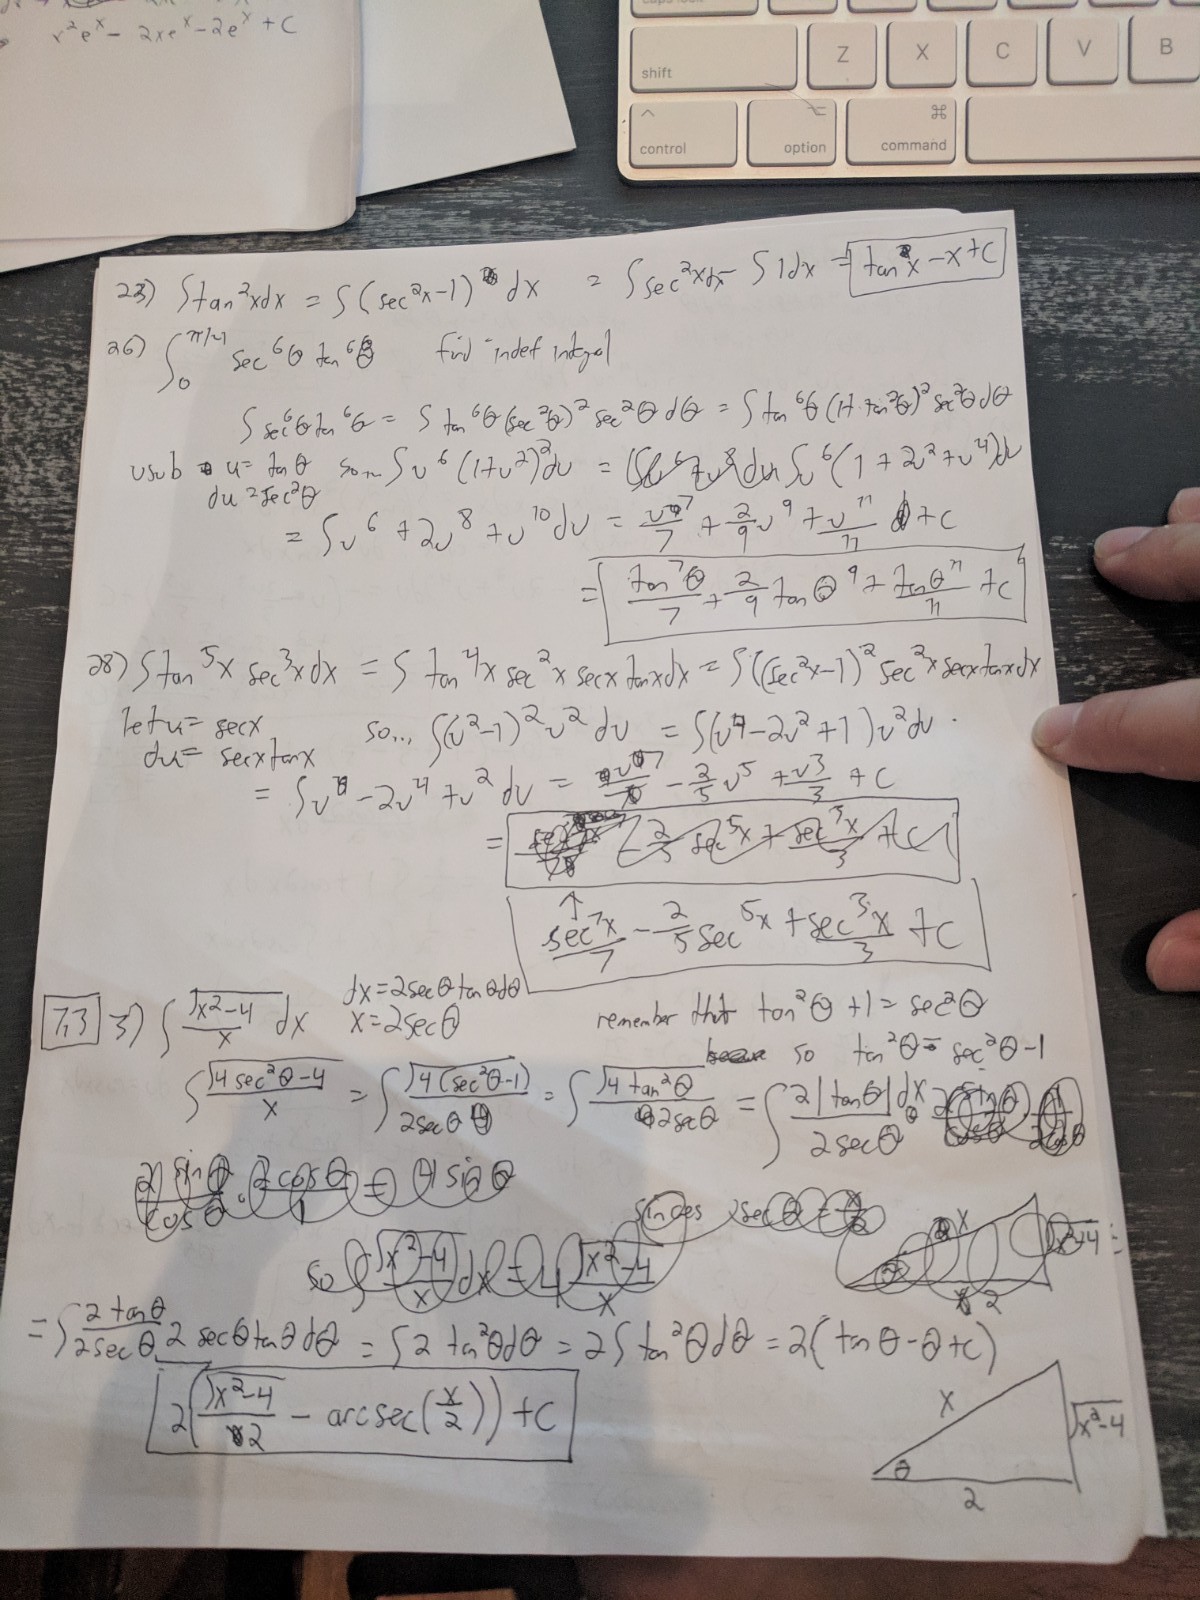 x²eˣ - 2xeˣ - 2eˣ + C
shift
Z
X
C
V
B
control
option
⌘
command
23) ∫tan²xdx = ∫(sec²x-1) dx = ∫sec²xdx - ∫1dx = tan x - x + C
26) ∫₀^(π/4) sec⁶θ tan⁶θ find indef integral
∫sec⁶θ tan⁶θ = ∫tan⁶θ (sec²θ)² sec²θ dθ = ∫tan⁶θ (1+tan²θ)² sec²θ dθ
usub u = tanθ so... ∫u⁶(1+u²)²du = ∫u⁶(1+2u²+u⁴)du
du = sec²θ
= ∫u⁶ + 2u⁸ + u¹⁰ du = u⁷/7 + 2/9 u⁹ + u¹¹/11 + C
= tan⁷θ/7 + 2/9 tanθ⁹ + tanθ¹¹/11 + C
28) ∫tan⁵x sec³x dx = ∫tan⁴x sec²x secx tanx dx = ∫((sec²x-1)² sec²x secx tanx dx
let u = secx so... ∫(u²-1)²u² du = ∫(u⁴-2u²+1)u²du
du = secx tanx
= ∫u⁶ - 2u⁴ + u² du = u⁷/7 - 2/5 u⁵ + u³/3 + C
= - 2/5 sec⁵x + sec³x/3 + C
↑
sec⁷x/7 - 2/5 sec⁵x + sec³x/3 + C
7.3 3) ∫ √(x²-4)/x dx
dx = 2secθtanθdθ
x = 2secθ
remember that tan²θ + 1 = sec²θ
so tan²θ = sec²θ - 1
∫ √(4sec²θ-4)/x = ∫ √(4(sec²θ-1))/2secθ = ∫ √(4tan²θ)/2secθ = ∫ 2|tanθ|dx/2secθ
2sinθ/cosθ · 2cosθ/1 = 4sinθ
so ∫ √(x²-4)/x dx = 4 √(x²-4)/x
x √(x²-4) 2
= ∫ 2tanθ/2secθ 2secθtanθdθ = ∫2tan²θdθ = 2∫tan²θdθ = 2(tanθ-θ+C)
2(√(x²-4)/2 - arcsec(x/2)) + C
x √(x²-4)
θ
2